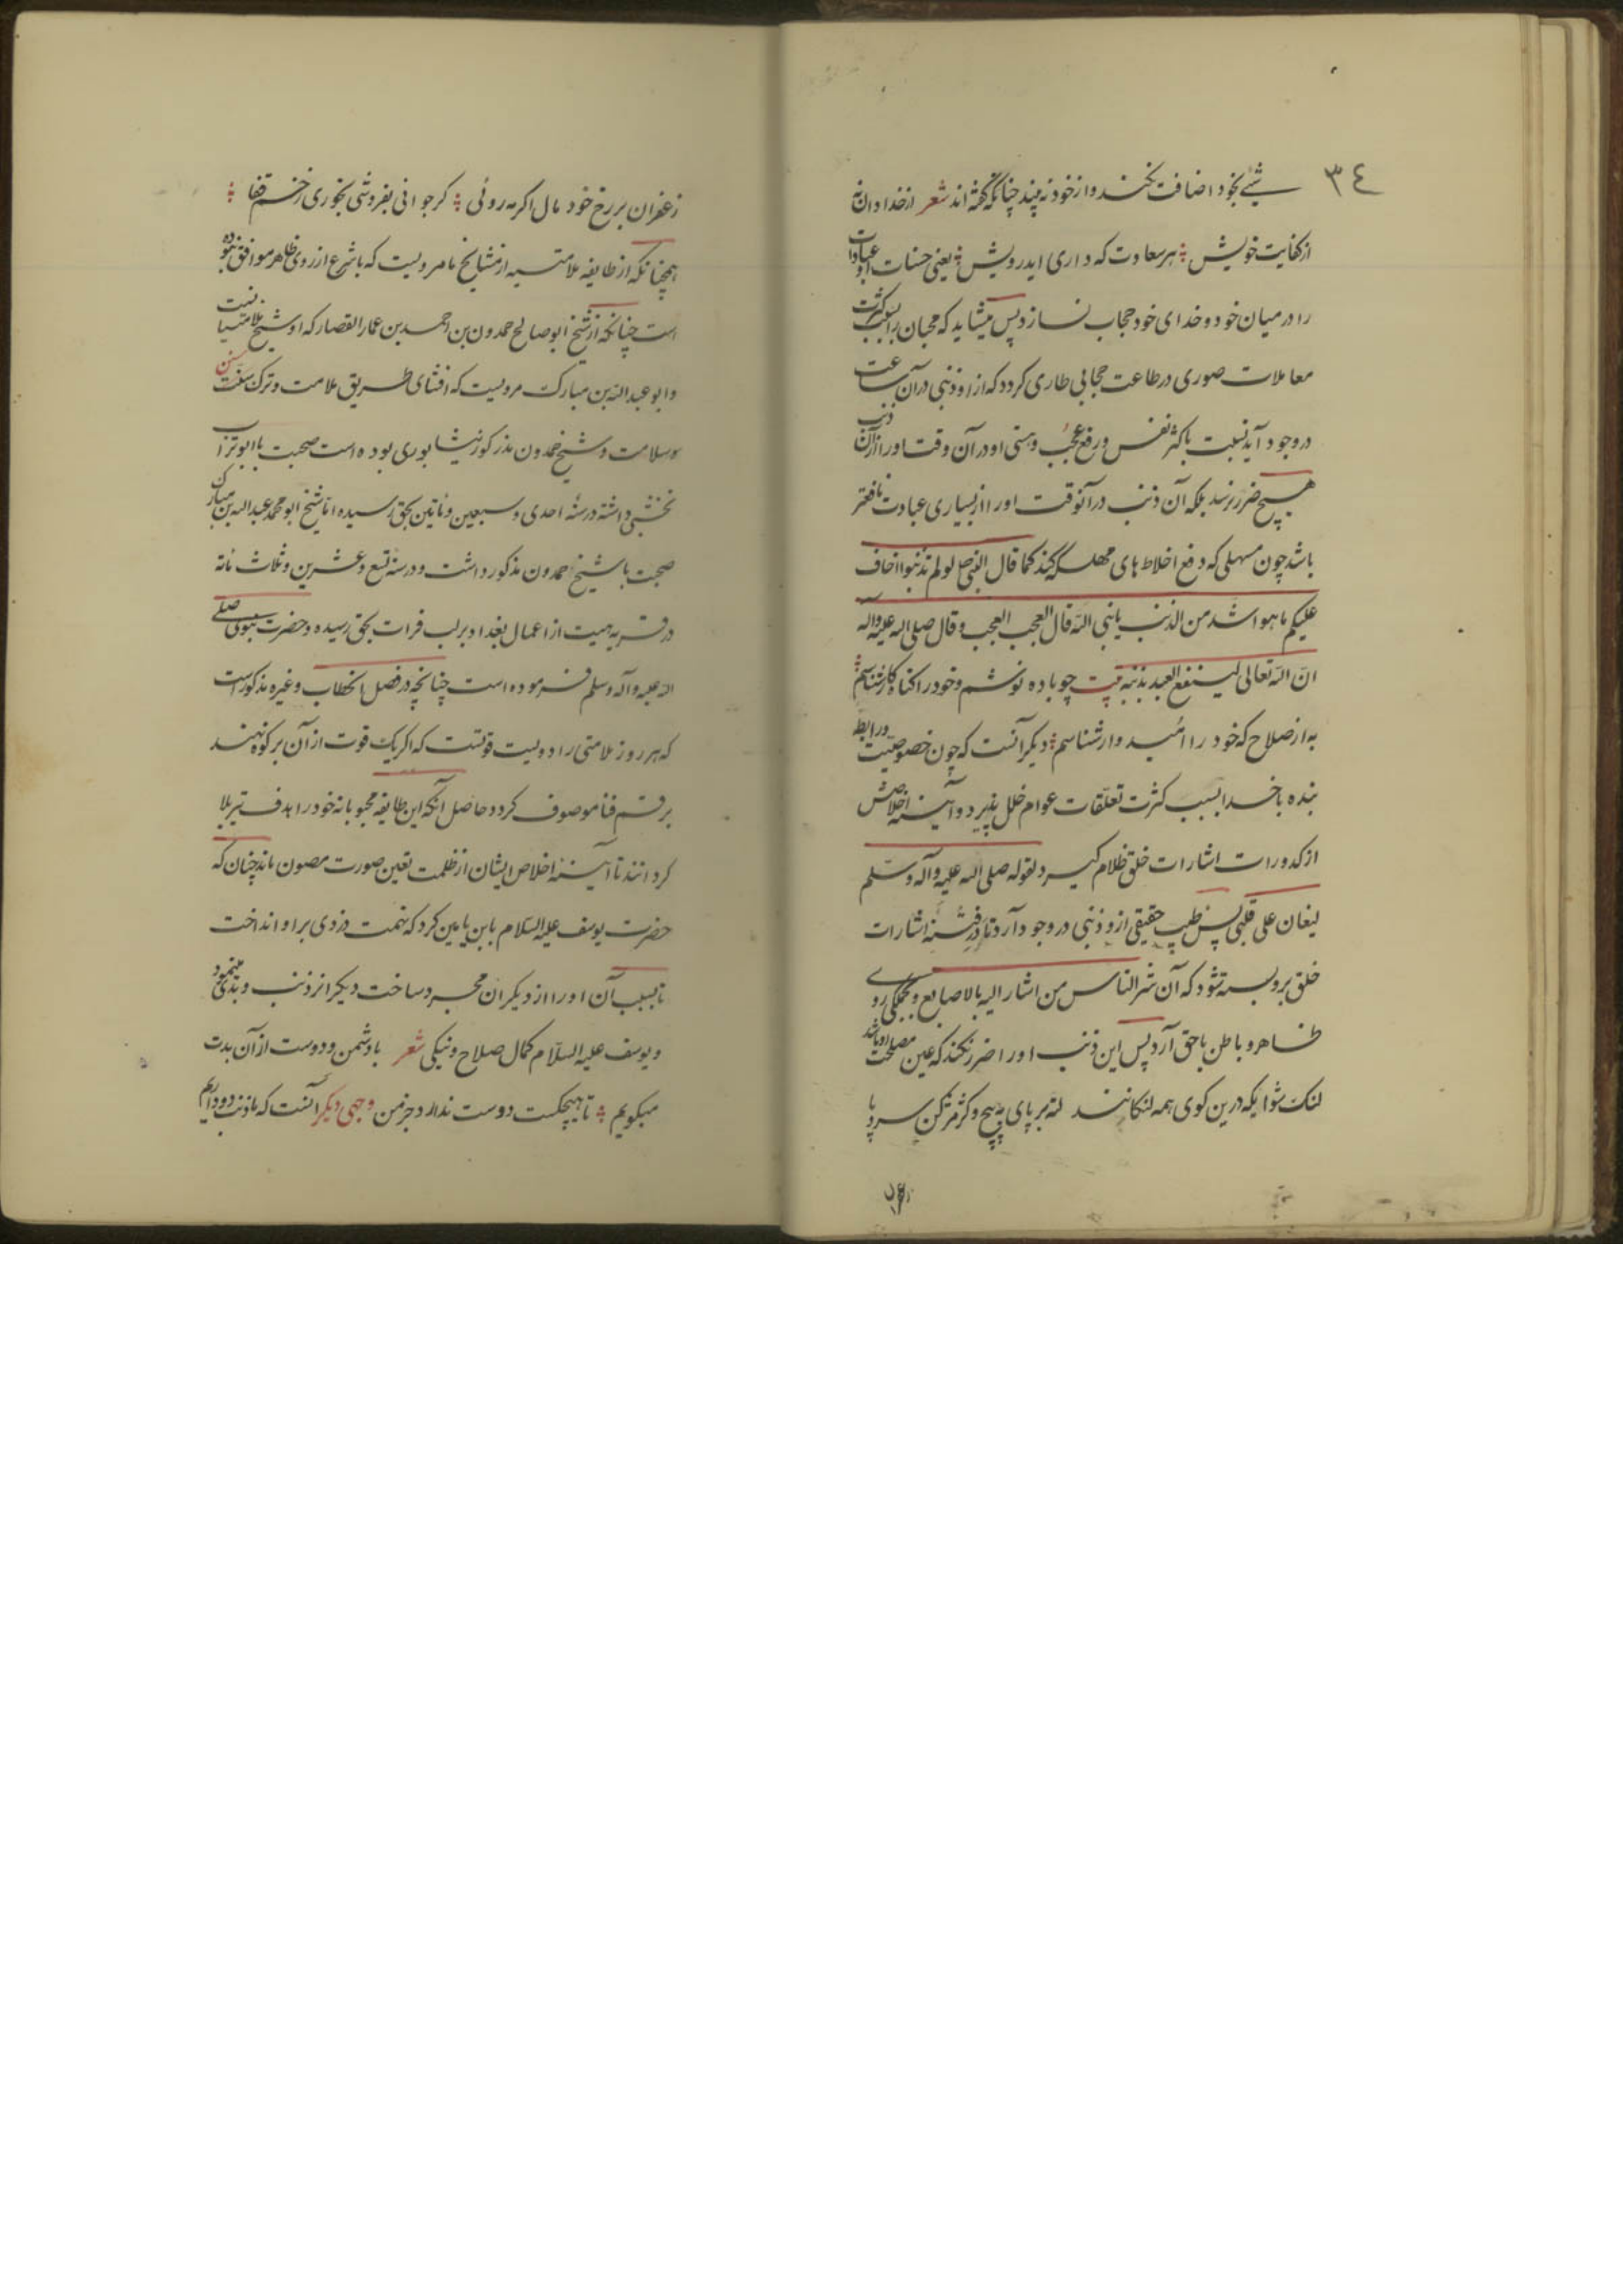 ٣٤
شیئے بخود اضافت نکند و از خود نه بیند چنانکه گفته اند شعر از خدا دان نه
از کفایت خویش ؞ هر سعادت که داری ایدرویش ؞ یعنی حسنات و عبادات او
را در میان خود و خدای خود حجاب نسازد پس میشاید که محبان را بسبب کثرت
معاملات صوری در طاعت حجابی طاری کردد که از او ذنبی در آن ساعت
در وجود آید نسبت با کثر نفس و رفع عجب و هستی او در آن وقت او را از آن ذنب
هیچ ضرر نرسد بلکه آن ذنب در آنوقت او را از بسیاری عبادت نافعتر
باشد چون مسهلی که دفع اخلاط های مهلکه کند کما قال النبی ص لو لم تذنبوا اخاف
علیکم ما هو اشد من الذنب یا نبی الله قال العجب العجب و قال صلی الله علیه و آله
ان الله تعالی لینفع العبد بذنبه بیت چو باده نوشم و خود را کناه کار شناسم ؞
به از صلاح که خود را امید وار شناسم ؞ دیکر آنست که چون خصوصیت و رابطه
بنده با خدا بسبب کثرت تعلقات عوام خلل پذیرد و آیینه اخلاصش
از کدورات اشارات خلق ظلام کیرد لقوله صلی الله علیه و آله و سلم
لیغان علی قلبی پس طبیب حقیقی ازو ذنبی در وجود آرد تا در فتنه اشارات
خلق برو بسته شود که آن شر الناس من اشار الیه بالاصابع و بجملگی روی
ظاهر و باطن با حق آرد پس این ذنب او را ضرر نکند که عین مصلحت او باشد
لنک شو ایکه درین کوی همه لنکانند لته بر پای بپیچ و کژ مژ کن سر و پا
زعفران بر رخ خود مال اکر مه روئی ؞ کر جوانی بفروشی بخوری زخم قفا ؞
همچنانکه از طایفه ملامتیه از مشایخ ما مرویست که با شرع از روی ظاهر موافق نبوده
است چنانکه از شیخ ابو صالح حمدون بن احمد بن عمار القصار که او شیخ ملامتیانست
و ابو عبد الله بن مبارک مرویست که افشای طریق ملامت و ترک سنن
و سلامت و شیخ حمدون مذکور نیشابوری بوده است صحبت با ابو تراب
نخشبی داشته در سنه احدی و سبعین و مأتین بحق رسیده اما شیخ ابو محمد عبد الله بن مبارک
صحبت با شیخ حمدون مذکور داشت و در سنه تسع و عشرین و ثلاث مائه
در قریه هیت از اعمال بغداد بر لب فرات بحق رسیده و حضرت نبوی صلی
الله علیه و آله و سلم فرموده است چنانچه در فصل الخطاب و غیره مذکور است
که هر روز ملامتی را دویست قوتست که اکر یک قوت از آن بر کوه نهند
برقم فنا موصوف کردد حاصل آنکه این طایفه محبوبانه خود را هدف تیر بلا
کردانند تا آیینه اخلاص ایشان از ظلمت تعین صورت مصون ماند چنان که
حضرت یوسف علیه السلام با ابن یامین کرد که تهمت دزدی بر او انداخت
تا بسبب آن او را از دیکران مجرد ساخت دیکرانرا ذنب و بدی مینمود
و یوسف علیه السلام کمال صلاح و نیکی شعر با دشمن و دوست از آن بدت
میکویم ؞ تا هیچکست دوست ندارد جز من وجهی دیکر آنست که ما ذنب